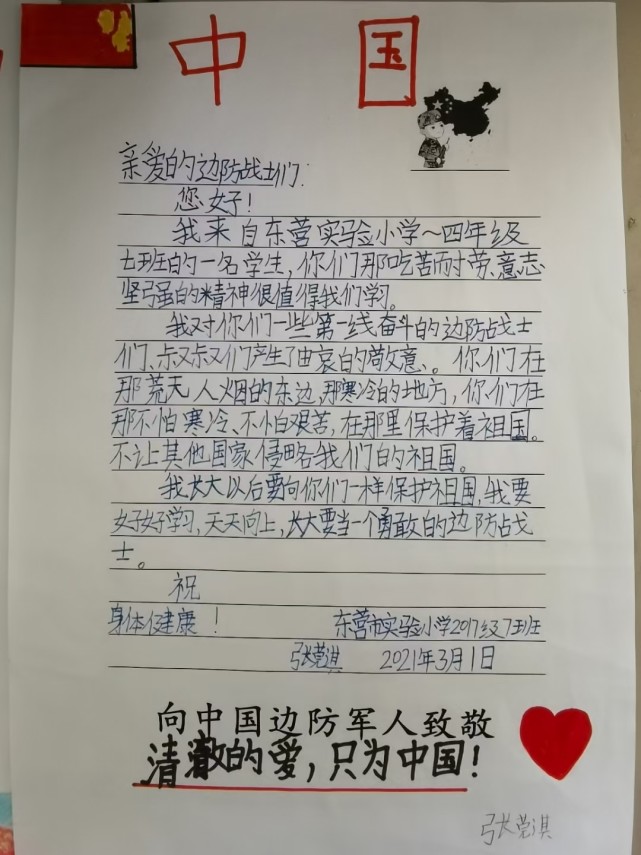 中国
亲爱的边防战士们:
您好!
我来自东营实验小学~四年级
七班的一名学生,你们那吃苦而寸劳、意志
坚强的精神很值得我们学习。
我对你们一些第一线奋斗的边防战士
们、叔叔们产生了由哀的敬意、。你们在
那荒无人烟的东边,那寒冷的地方,你们在
那不怕寒冷、不怕艰苦,在那里保护着祖国。
不让其他国家侵略我们的祖国。
我长大以后要向你们一样保护祖国,我要
好好学习,天天向上,长大要当一个勇敢的边防战
士。
祝
身体健康!
东营市实验小学2017级7班
张荣淇 2021年3月1日
向中国边防军人致敬
清澈的爱,只为中国!
张荣淇